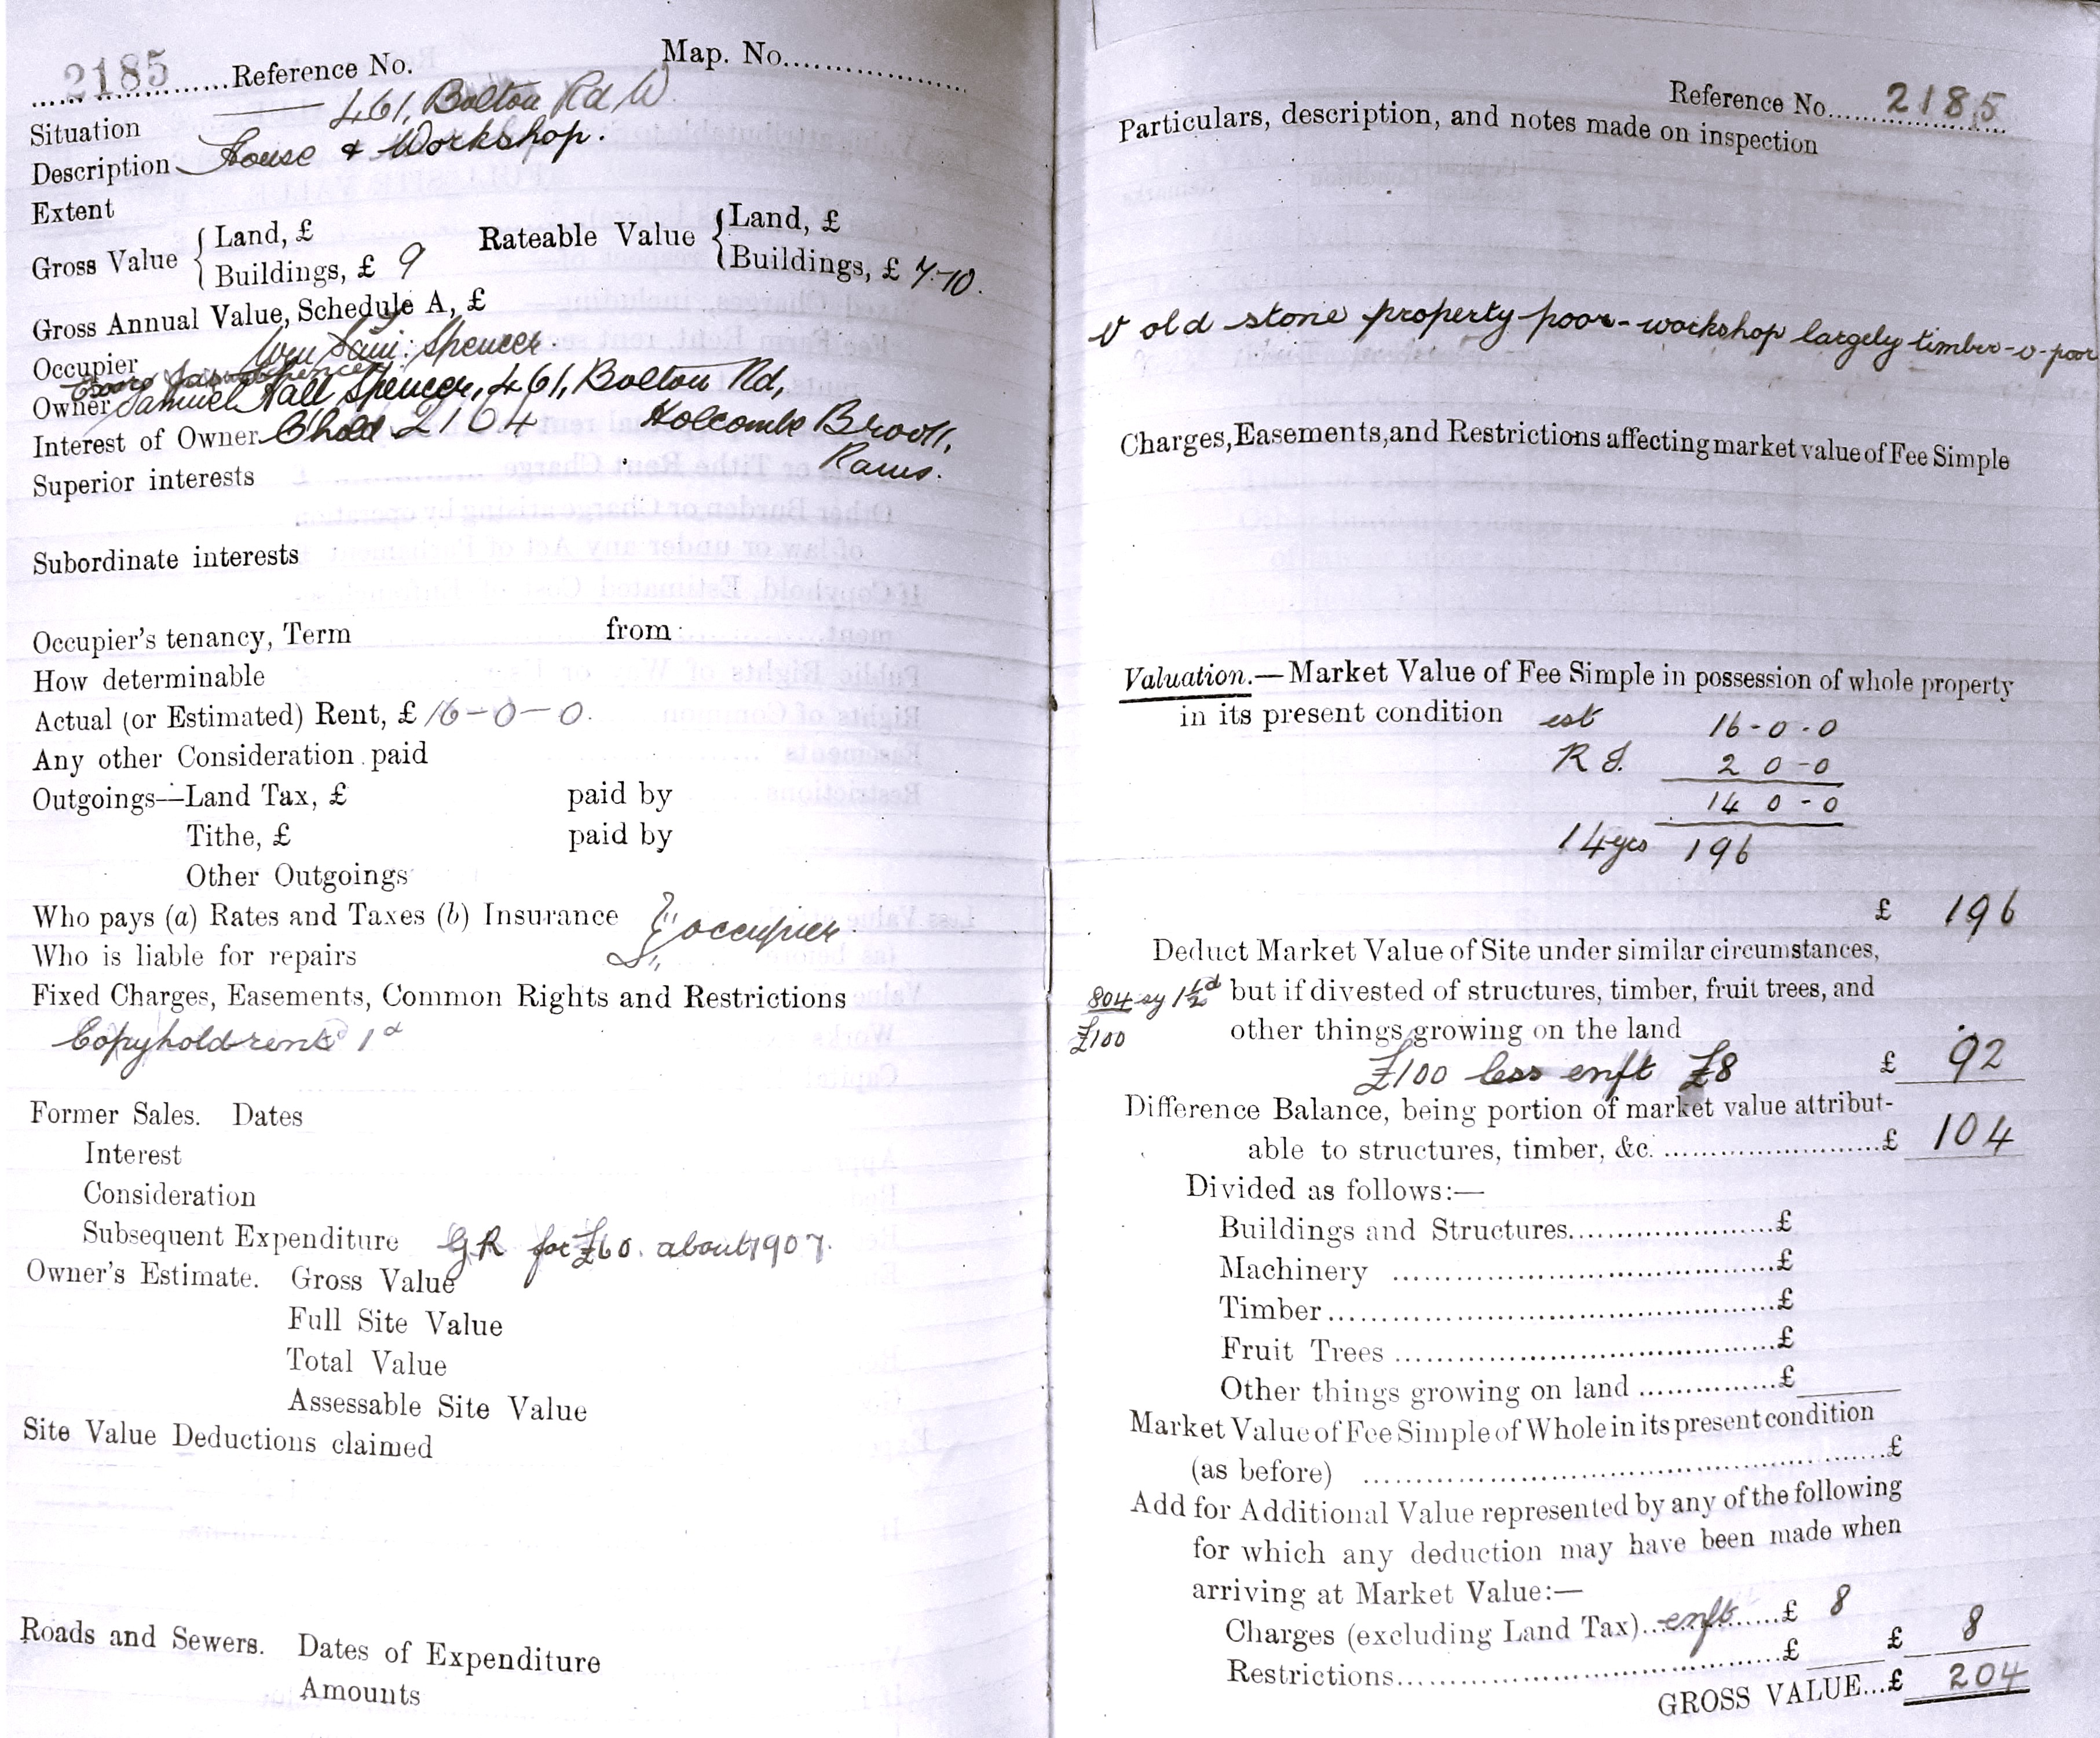 2185 Reference No. Map. No.
Situation 461, Bolton Rd W
Description House & Workshop.
Extent
Gross Value { Land, £
Buildings, £ 9
Rateable Value { Land, £
Buildings, £ 7-10.
Gross Annual Value, Schedule A, £
Occupier Wm Saml: Spencer
Owner Samuel Hall Spencer, 461, Bolton Rd,
Interest of Owner C'hold 2104 Holcombe Brook,
Rams.
Superior interests
Subordinate interests
Occupier's tenancy, Term from
How determinable
Actual (or Estimated) Rent, £ 16-0-0.
Any other Consideration paid
Outgoings—Land Tax, £ paid by
Tithe, £ paid by
Other Outgoings
Who pays (a) Rates and Taxes (b) Insurance } occupier.
Who is liable for repairs
Fixed Charges, Easements, Common Rights and Restrictions
Copyhold rent 1d
Former Sales. Dates
Interest
Consideration
Subsequent Expenditure G R for £60. about 1907.
Owner's Estimate. Gross Value
Full Site Value
Total Value
Assessable Site Value
Site Value Deductions claimed
Roads and Sewers. Dates of Expenditure
Amounts
Reference No. 2185
Particulars, description, and notes made on inspection
v old stone property poor - workshop largely timber - v - poor
Charges, Easements, and Restrictions affecting market value of Fee Simple
Valuation.—Market Value of Fee Simple in possession of whole property
in its present condition est 16-0-0
R I. 2 0-0
14 0-0
14 yrs 196
£ 196
Deduct Market Value of Site under similar circumstances,
804 sy 1½d but if divested of structures, timber, fruit trees, and
£100 other things growing on the land
£100 less enft £8 £ 92
Difference Balance, being portion of market value attribut-
able to structures, timber, &c. £ 104
Divided as follows:—
Buildings and Structures £
Machinery £
Timber £
Fruit Trees £
Other things growing on land £
Market Value of Fee Simple of Whole in its present condition
(as before) £
Add for Additional Value represented by any of the following
for which any deduction may have been made when
arriving at Market Value:—
Charges (excluding Land Tax) enft £ 8
Restrictions £ £ 8
GROSS VALUE...£ 204